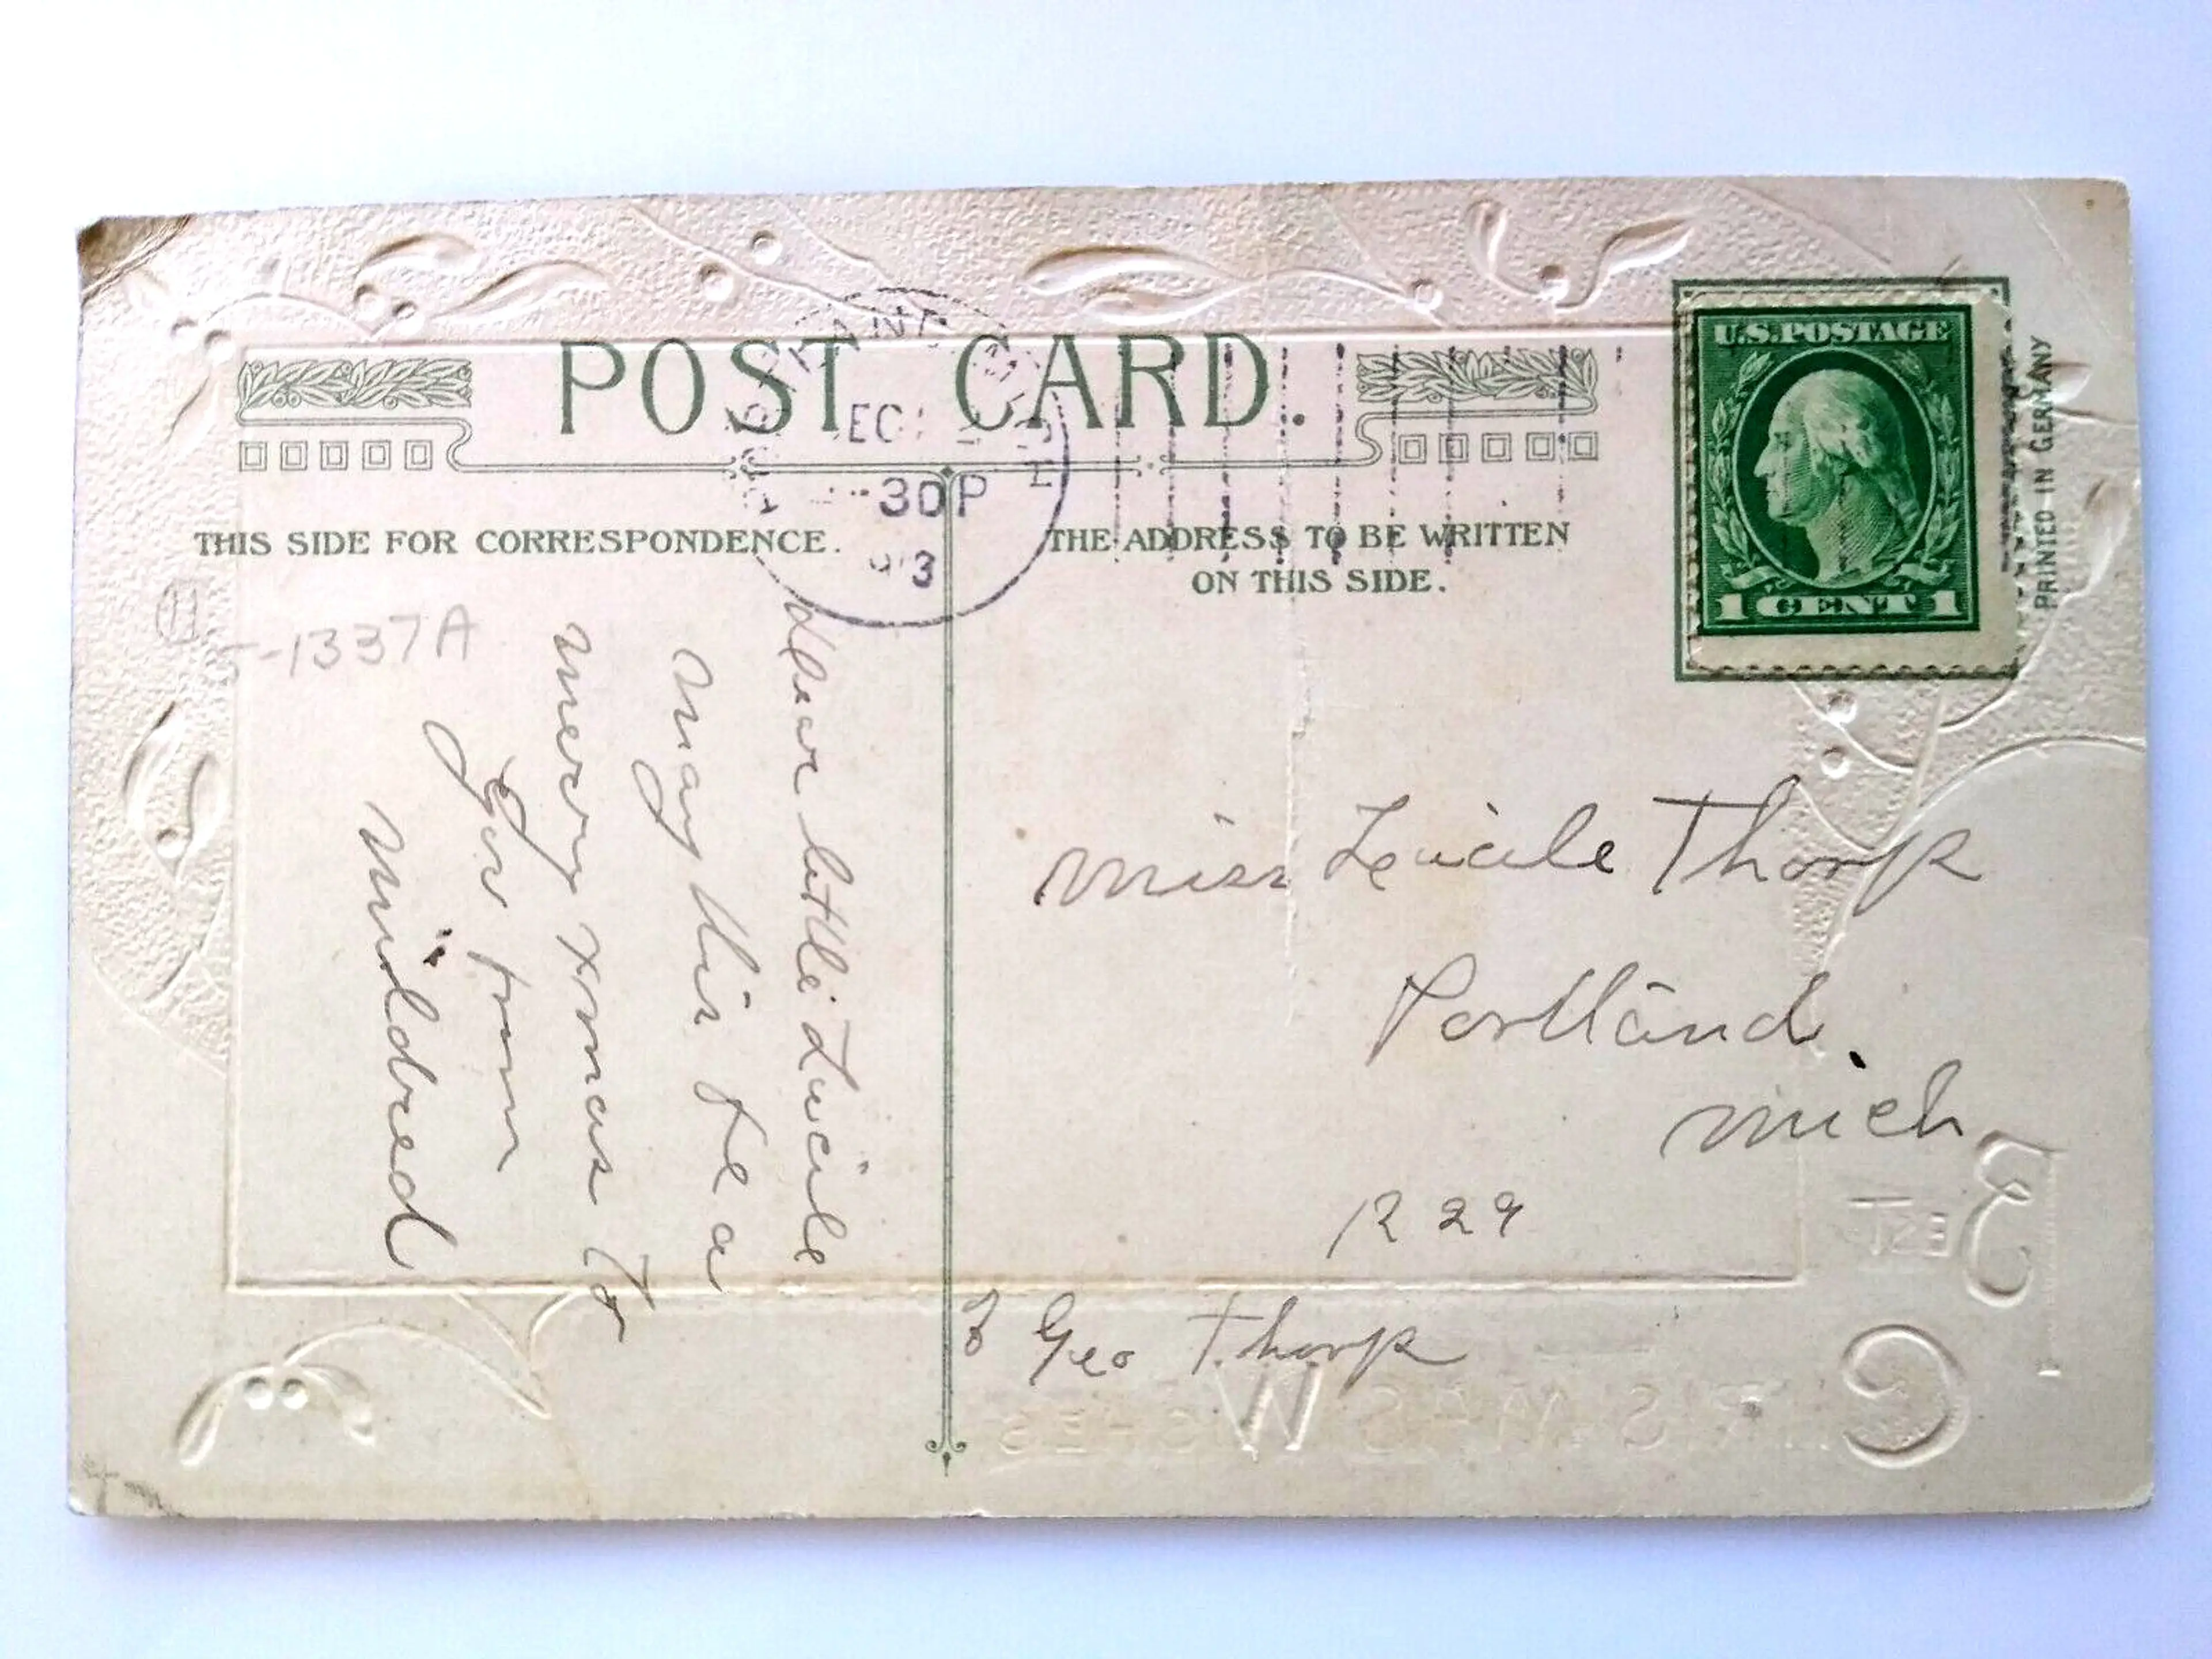 POST CARD.
EC
30P
THIS SIDE FOR CORRESPONDENCE.
THE ADDRESS TO BE WRITTEN
ON THIS SIDE.
U.S. POSTAGE
1 CENT 1
PRINTED IN GERMANY
11
-1337A
dear little Lucile
may this be a
merry xmas to
you from
Mildred
Miss Lucile Thorp
Portland.
Mich
1229
Geo Thorp
BEST
CHRISTMAS WISHES